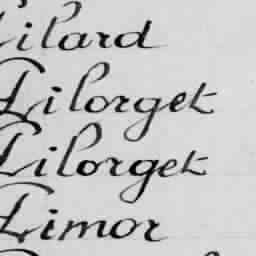 Pilard
Pilorget
Pilorget
Pimor